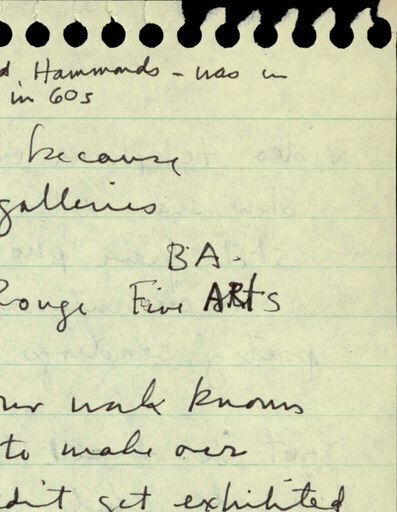 d Hammonds - was in
in 60s
because
galleries
BA.
Rouge Fine ARts
work knows
to make our
didn't get exhibited